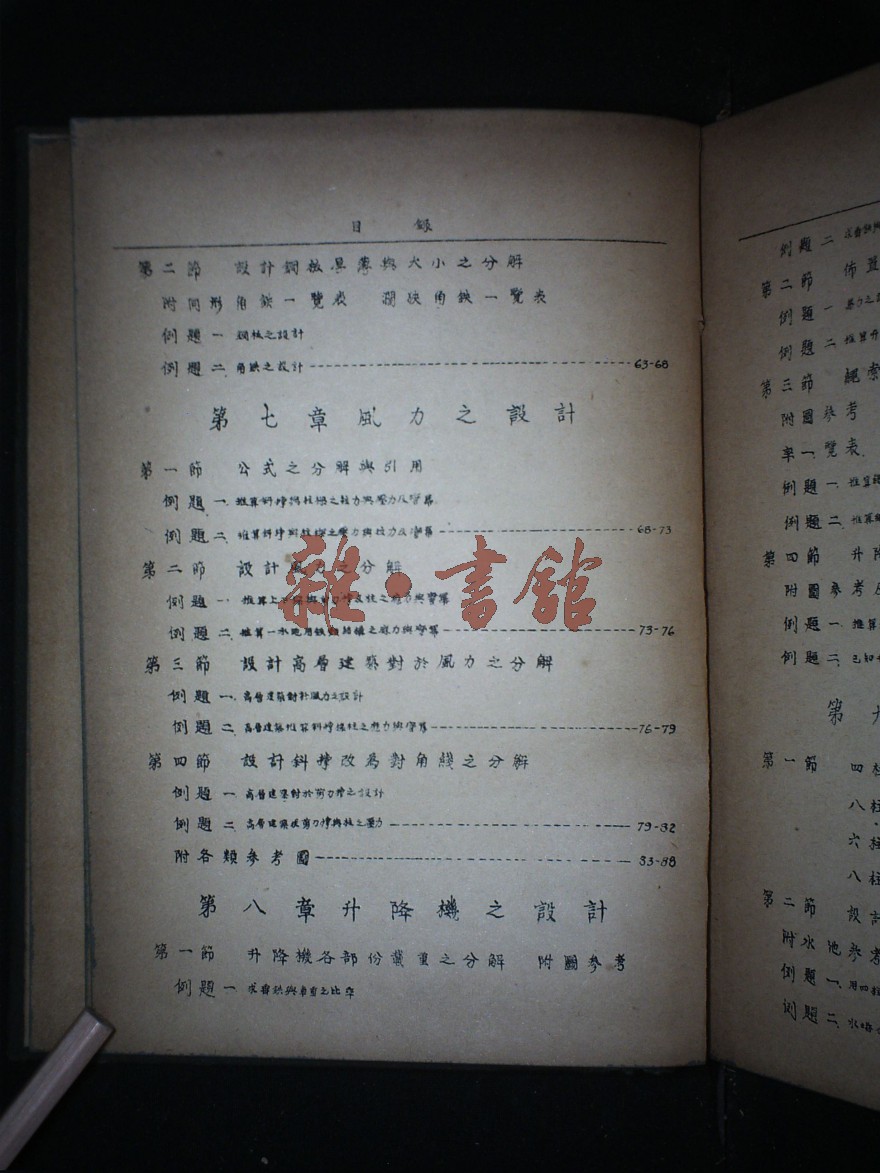 目 錄
第二節 設計鋼板厚薄與大小之分解
附同形角鉄一覽表 濶狹角鉄一覽表
例題一 鋼板之設計
例題二 角鉄之設計 63-68
第七章風力之設計
第一節 公式之分解與引用
例題一 推算斜撑 之拉力與壓力及
例題二 推算斜撑 之壓力與拉力及 68-73
第二節 設計風力之分解
例題一 推算上
例題二 推算一水 之應力與 73-76
第三節 設計高層建築對於風力之分解
例題一 高層建築對於風力之設計
例題二 高層建築推算斜撑 之應力與 76-79
第四節 設計斜撑改為對角綫之分解
例題一 高層建築對於剪刀撑之設計
例題二 高層建築 剪刀撑與柱之壓力 79-82
附各類參考圖 83-88
第八章升降機之設計
第一節 升降機各部份載重之分解 附圖參考
例題一 求 與車重之比率
例題二
第二節 佈置
例題一
例題二 推算升
第三節 繩索
附圖參考
率一覽表
例題一 推算
例題二 推算
第四節 升降
附圖參考及
例題一 推算
例題二 已知
第九
第一節 四柱
八柱
六柱
八柱
第二節 設計
附水池參考
例題一 用四柱
例題二 水塔
雜·書館